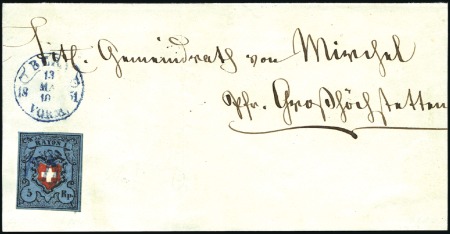 Titl. Gemeindrath von Mirchel
Pfr. Großhöchstetten
BERN
13
18 51
10
VORM
RAYON
5 Rp.